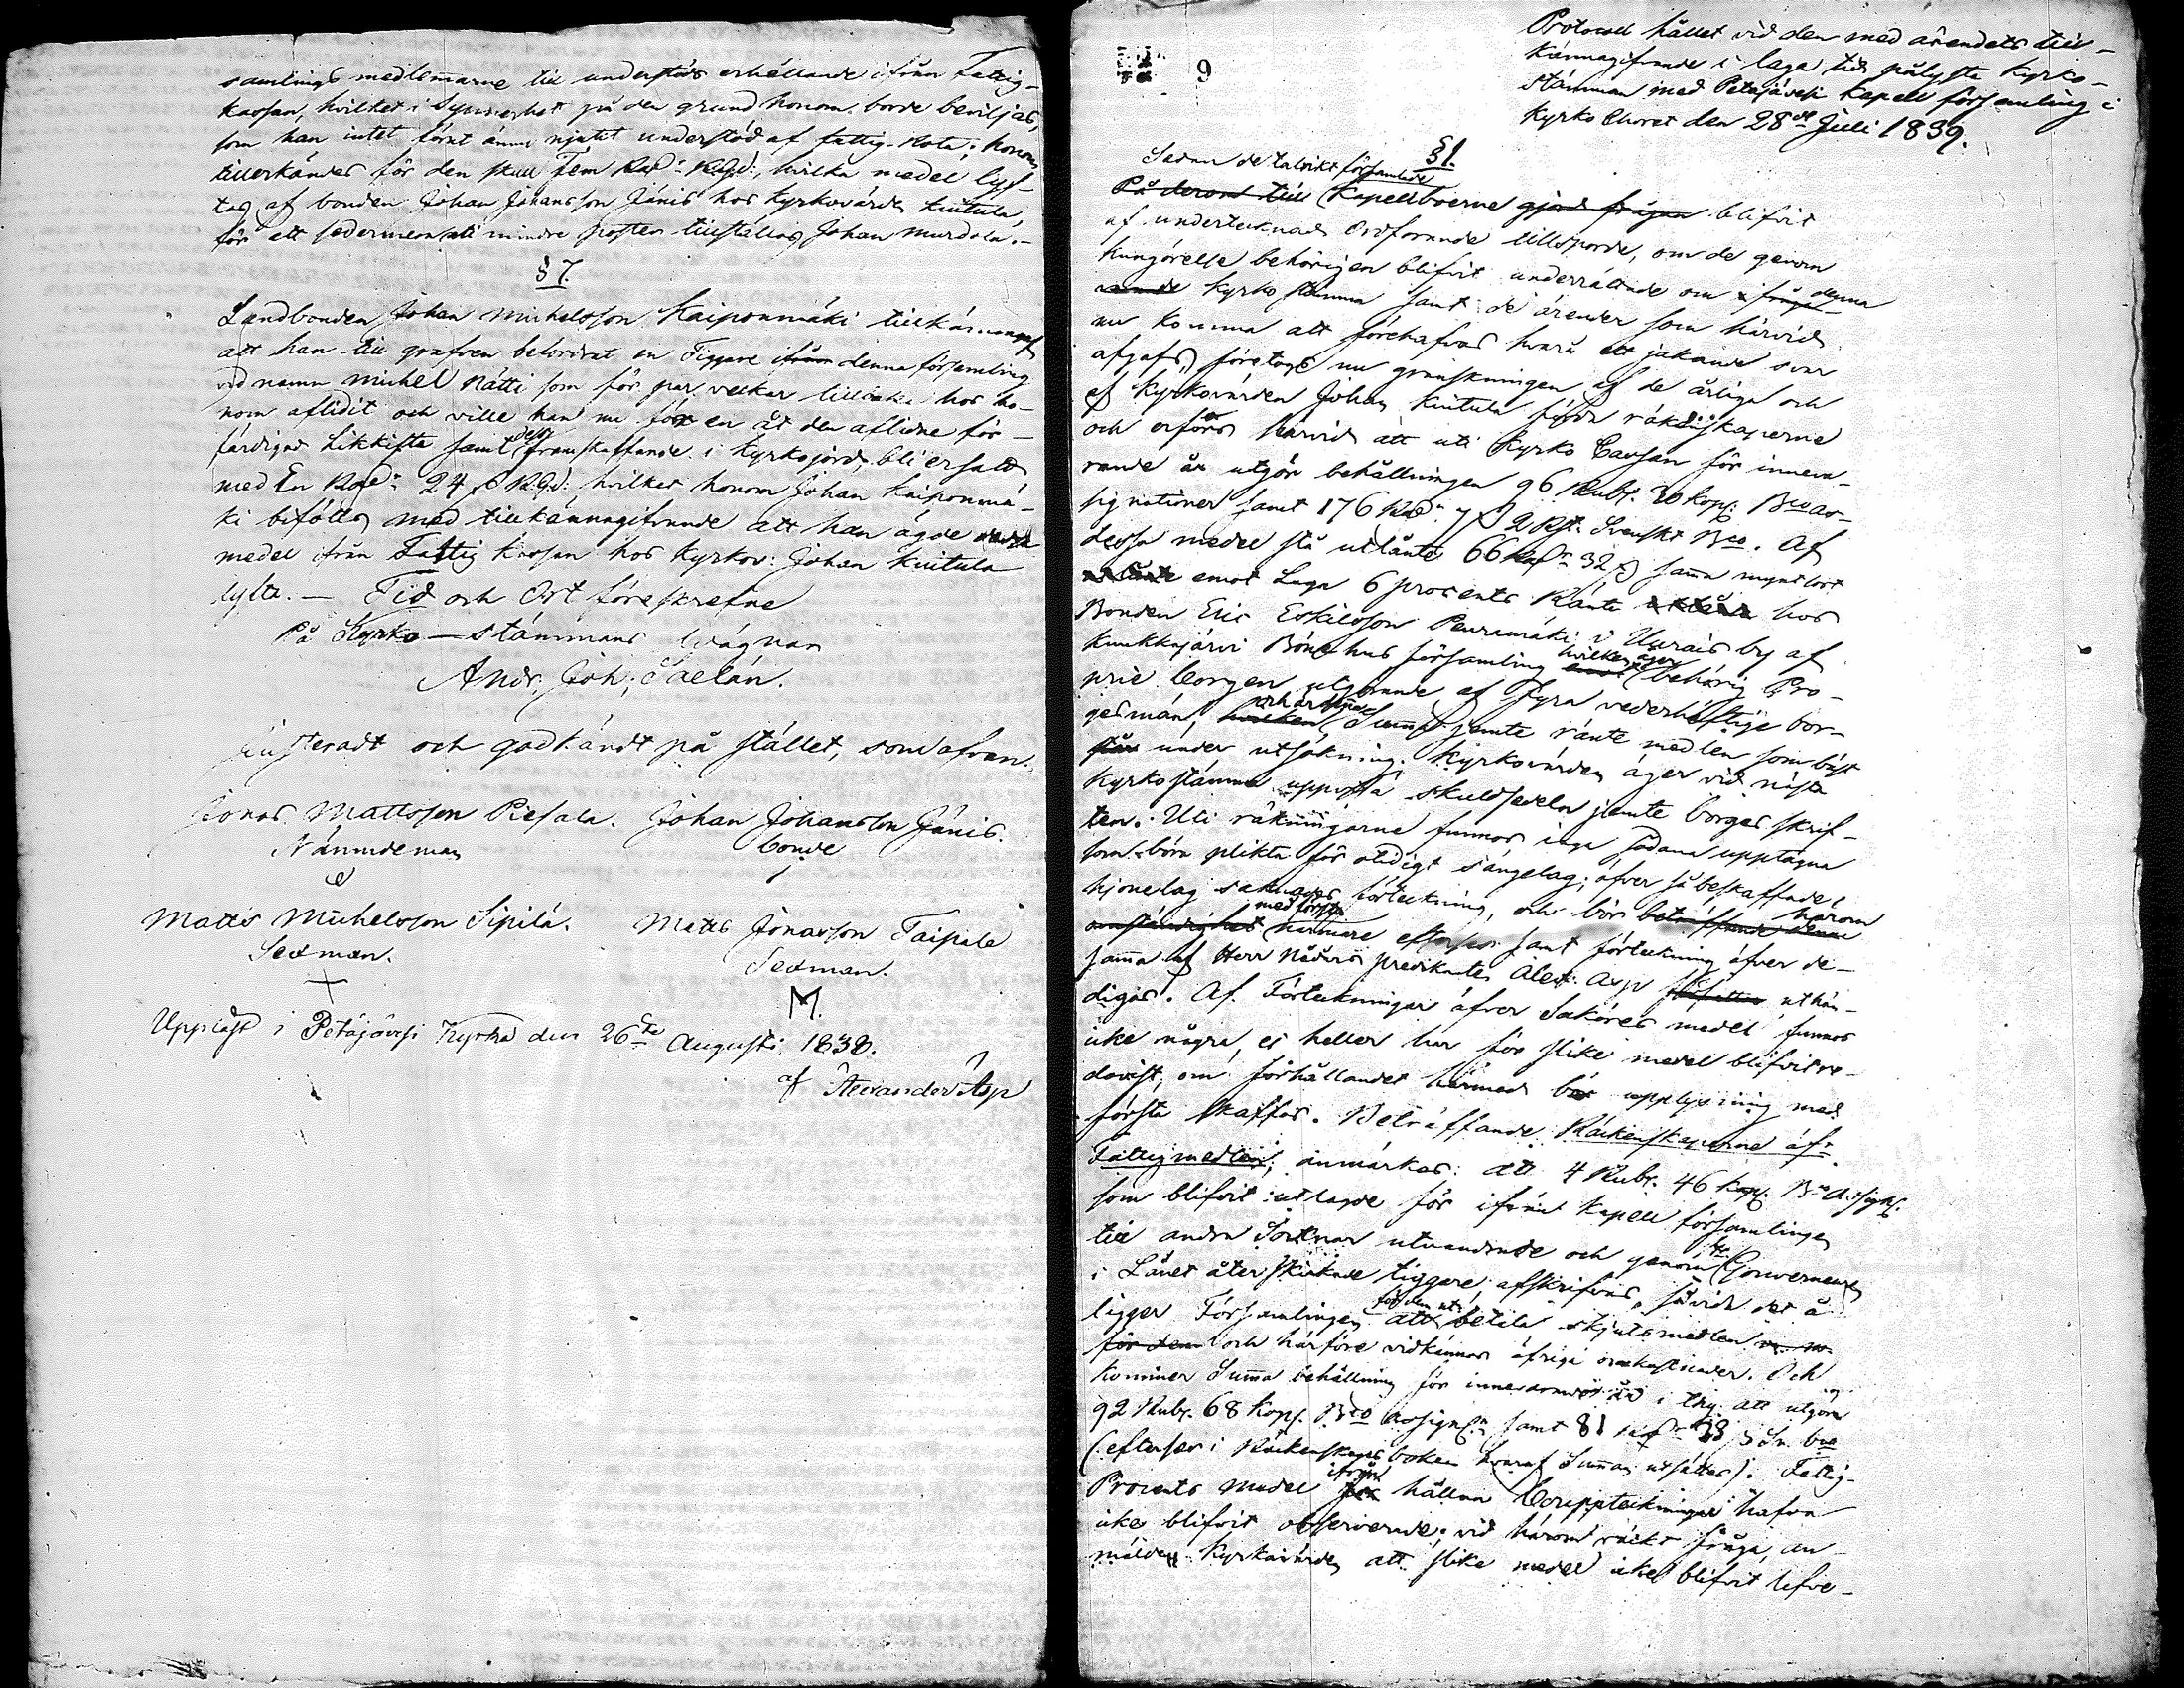 samlings medlemmarne till understöds erhållande ifrån Fattig-
kassan, hvilket i Synnerhet på den grund honom borde beviljas,
som han intet förut ännu njutit understöd af fattig-Kota; honom
tillerkändes för den skull Fem Rdr: RGd:, hvilka medel lyf-
tas af bonden Johan Johansson Jänis hos Kyrkovärden Kiutula,
för att sedermera uti mindre poster tillställas Johan Murdola.-
§ 7.
Landbonden Johan Michelsson Kaiponmäki tillkännagaf
att han till grafven befordrat en Tiggare ifrån denna församling
vid namn Michel Nätti som för par veckor tillbaka hos ho-
nom aflidit och ville han nu för en åt den aflidne för-
färdigad Likkista samt dess framskaffande i Kyrkojord, bli ersatt
med En Rdr: 24 s RGd: hvilket honom Johan Kaiponmä-
ki biföllts med tillkännagifvande att han ägde dessa
medel ifrån Fattig Kassan hos Kyrkov: Johan Kiutula
lyfta. — Tid och Ort föreskrefne
På Kyrko-stämmans vägnar
Andr. Joh; Saelán.
Justeradt och godkändt på stället, som ofvan.
Jonas Mattsson Piesala. Johan Johansson Jänis.
Nämndeman bonde
Matts Michelsson Sipilä. Matts Jonasson Taipale
Sexman. Sexman.
M.
Uppläst i Petäjävesi Kyrka den 26te Augusti 1838.
af Alexander Asp
9
Protocoll hållet vid den med ärendets till-
kännagifvande i laga tid pålysta Kyrko-
stämman med Petäjävesi Kapell församling i
Kyrko Choret den 28de Juli 1839.
§ 1.
Sedan de talrikt församlade
På derom till Kapellboerne gjord frågan blifvit
af undertecknad Ordförande tillsporde, om de genom
Kungörelse behörigen blifvit underrättade om denna
Kyrko stämma samt de ärender som härvid
nu komma att förehafvas hvarå ett jakande svar
afgafs, företogs nu granskningen af de årliga och
af Kyrkovärden Johan Kiutula förda räkenskaperne
och erfors härvid att uti Kyrko Cassan för inneva-
rande år utgör behållningen 96 Rub. 20 kop: Bco as-
signationer samt 176 Rdr 7 s 2 Rst. Svenskt Bco. Af
dessa medel stå utlånte 66 Rdr 32 s samma myntsort
emot Laga 6 procents Ränta hos
Bonden Eric Eskilsson Peuramäki i Uurais by af
Kuukkajärvi Bönehus församling hvilken äger behörig Pro-
prie borgen utgörande af Fyra vederhäftige bor-
gesmän, och är denna Summa jemte ränte medlen som bäst
under utsökning. Kyrkovärden äger vid nästa
Kyrkostämma uppvisa skuldsedeln jemte borges skrif-
ten. Uti räkningarne funnos inga sådana upptagna
som böra plikta för otidigt sängelag; öfver så beskaffade
hjonelag saknades förteckning, och bör härom
med första närmare efterses samt förteckning öfver de-
samma af Herr Nådårs predikanten Alex: Asp uthän-
digas. Af Förteckningar öfver Saköres medel funnos
icke några, ej heller har för slike medel blifvit re-
dovist; om förhållandet härmed bör upplysning med
första skaffas. Beträffande Räkenskaperne öfver
Fattigmedlen, anmärkas: att 4 Rub. 46 kop. Bco Assign.
som blifvit utlagde för ifrån Kapell församlingen
till andra Socknar utvandrade och genom Hr Gouverneuren
i Länet återskickade tiggare, afskrifvas, såvida det å-
ligger Församlingen att för dem betala skjutsmedlen
för dem och härföre vidkännas öfriga omkostnader. Och
kommer Summa behållning för innevarande år i thy att utgöra
92 Rub. 68 kop. Bco Assign. samt 81 Rdr 28 s Sv. bco
(efterses i Räkenskaps boken hvaraf Summan utsättes). Fattig-
Procents medel ifrån hållna bouppteckningar hafva
icke blifvit observerade; vid härom väckt fråga, an-
mälde Kyrkovärden att slike medel icke blifvit lefve-